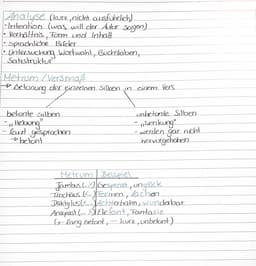 Analyse (kurz, nicht ausführlich)
- Intention (was will der Autor sagen)
- Verhältnis, Form und Inhalt
- sprachliche Bilder
- Untersuchung Wortwahl, Buchstaben,
Satzstruktur
Metrum / Versmaß
→ Betonung der einzelnen Silben in einem Vers
betonte Silben
unbetonte Silben
- „Hebung"
- „Senkung"
- laut gesprochen
- werden gar nicht
→ betont
hervorgehoben
Metrum | Beispiel
Gespenst, unglück
Formen, lachen
wunderbar
Elefant, Fantasie
lang betont, – kurz, unbetont)